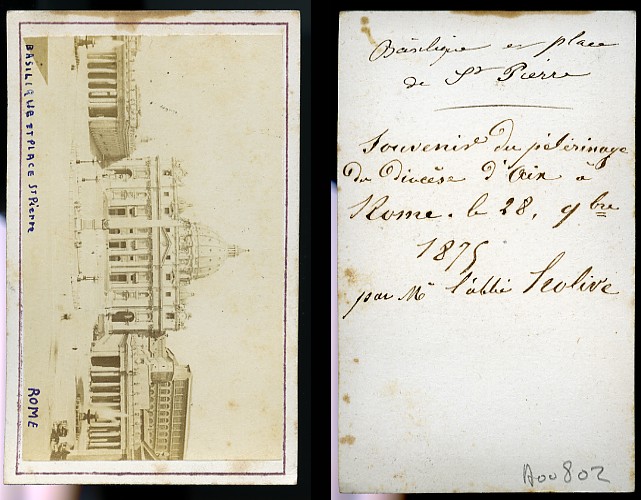 BASILIQUE ET PLACE St PIERRE
ROME
Basilique et place
de St Pierre
Souvenir du pélérinage
du diocèse d'Aix à
Rome. le 28. 9bre
1875
par Mr l'abbé
A00802